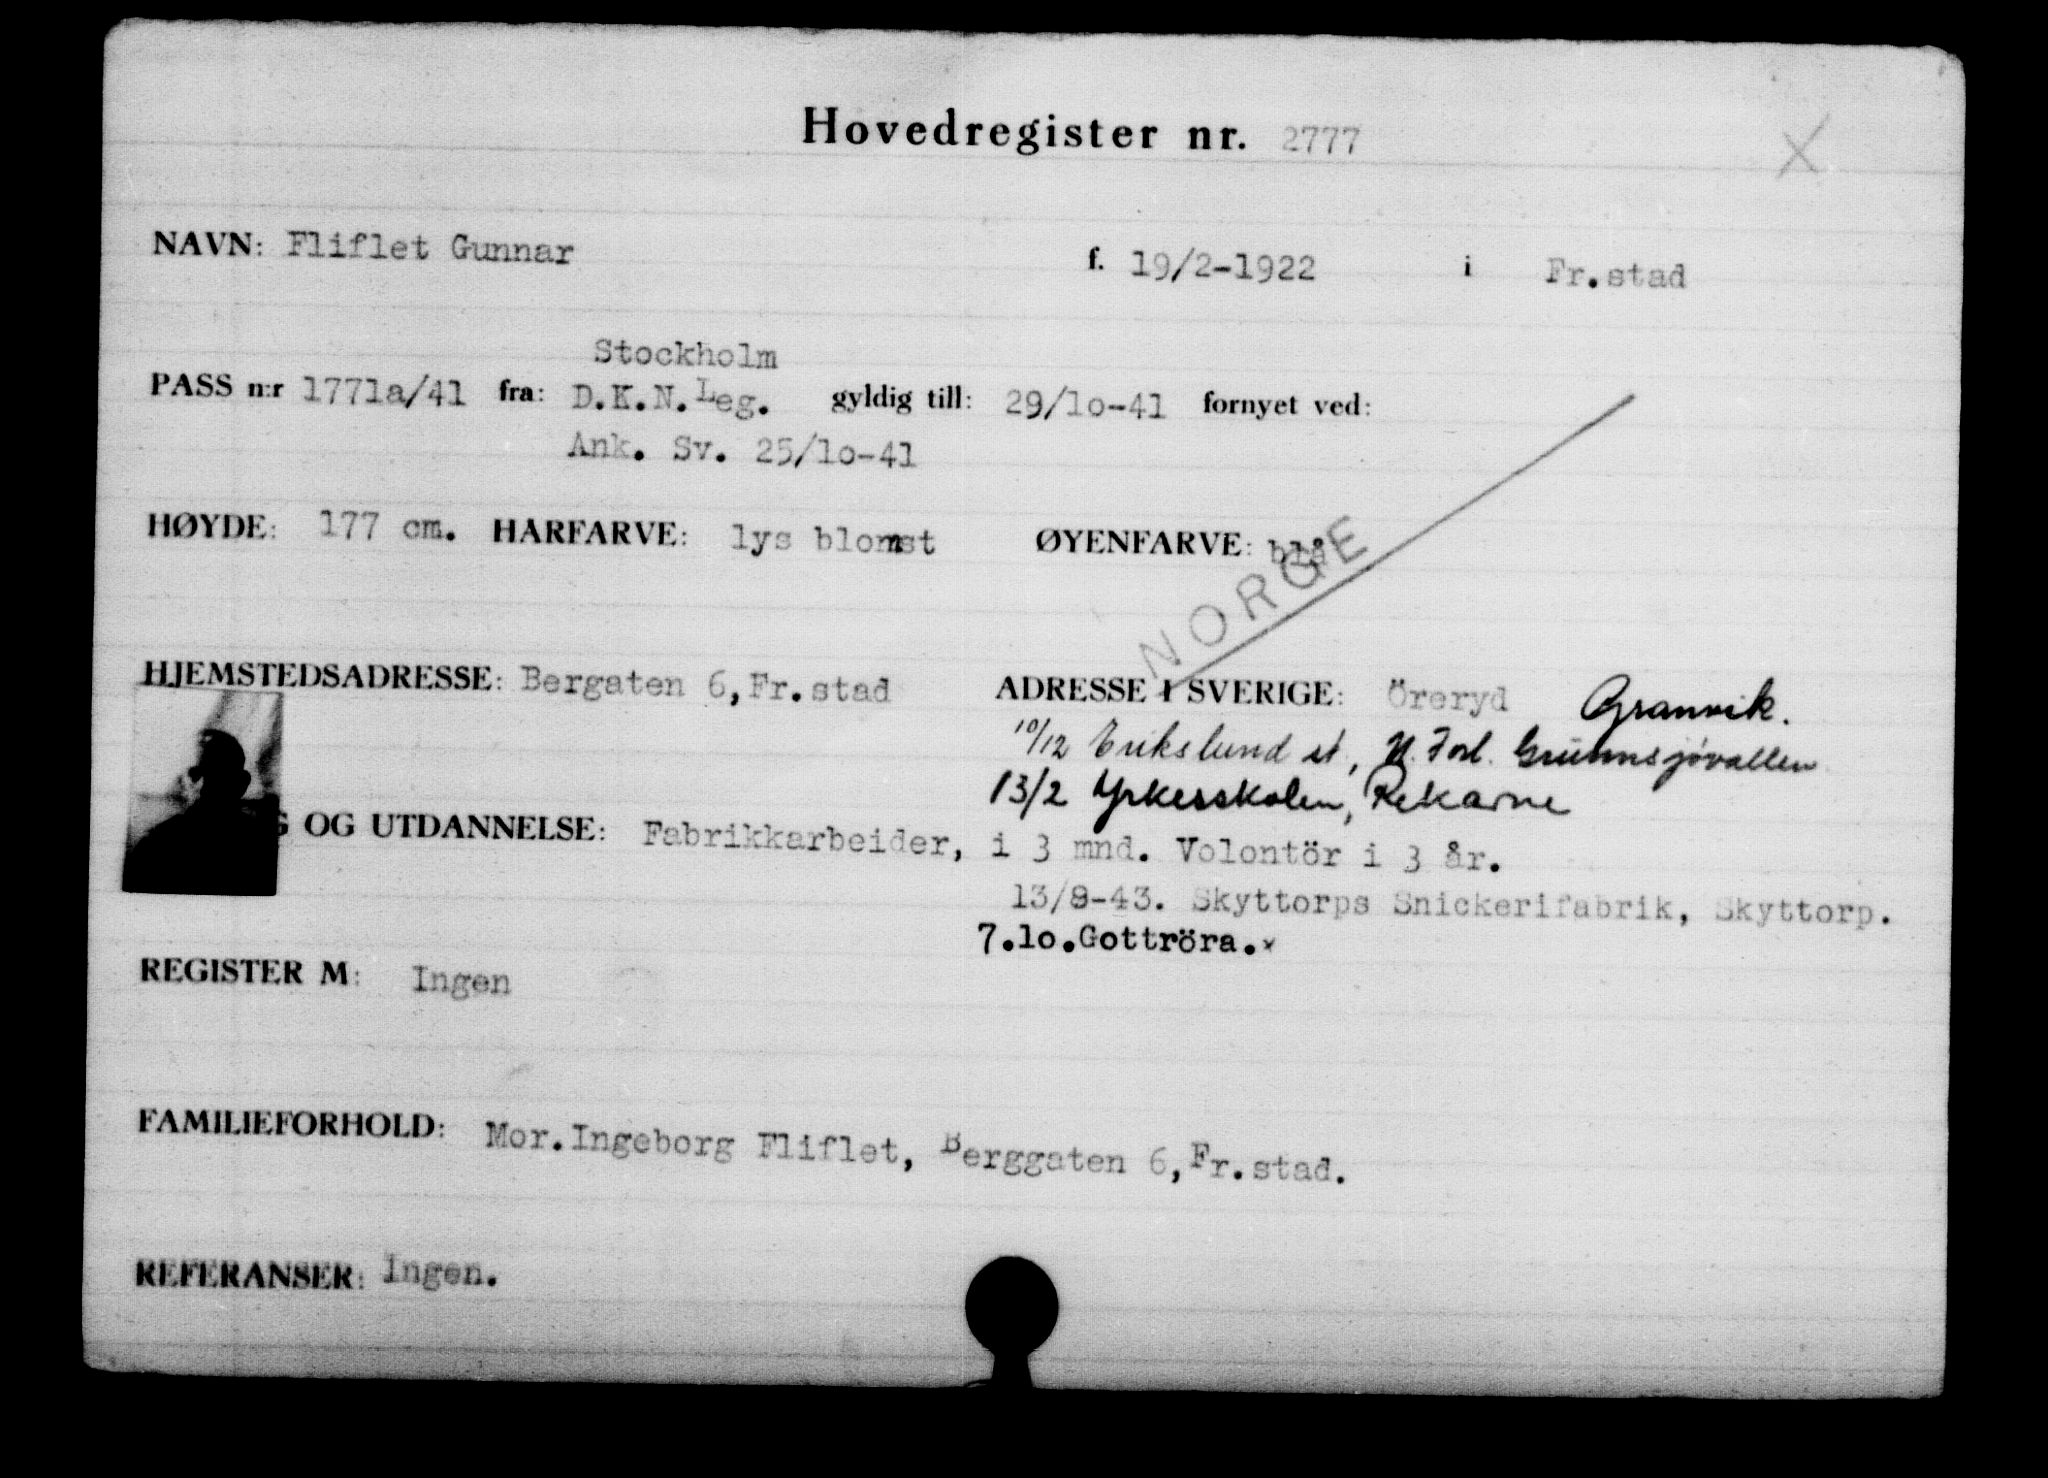 Hovedregister nr. 2777
X
NAVN: Fliflet Gunnar f. 19/2-1922 i Fr.stad
Stockholm
PASS n:r 1771a/41 fra: D.K.N.Leg. gyldig till: 29/lo-41 fornyet ved:
Ank. Sv. 25/lo-41
HØYDE: 177 cm. HARFARVE: lys blomst ØYENFARVE: blå
NORGE
HJEMSTEDSADRESSE: Bergaten 6, Fr.stad ADRESSE I SVERIGE: Öreryd Granvik.
10/12 Erikslund st, N. Forl. Grünnsjövallen
13/2 Yrkesskolen, Rekarne
G OG UTDANNELSE: Fabrikkarbeider, i 3 mnd. Volontör i 3 år.
13/8-43. Skyttorps Snickerifabrik, Skyttorp.
7.lo.Gottröra.x
REGISTER M: Ingen
FAMILIEFORHOLD: Mor.Ingeborg Fliflet, Berggaten 6, Fr.stad.
REFERANSER: Ingen.